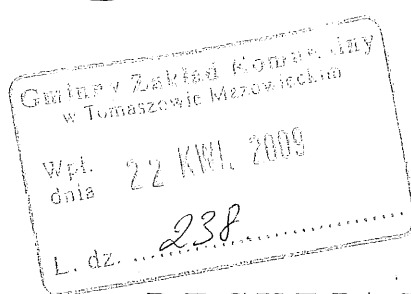 Gminny Zakład Komunalny
w Tomaszowie Mazowieckim
Wpł.
dnia 22 KWI. 2009
L. dz. 238